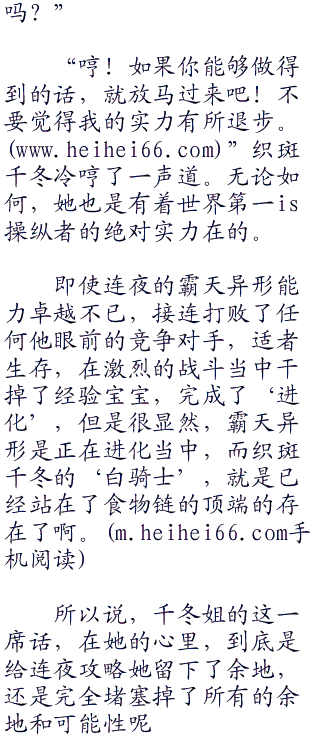 吗？”
“哼！如果你能够做得
到的话，就放马过来吧！不
要觉得我的实力有所退步。
(www.heihei66.com)”织斑
千冬冷哼了一声道。无论如
何，她也是有着世界第一is
操纵者的绝对实力在的。
即使连夜的霸天异形能
力卓越不已，接连打败了任
何他眼前的竞争对手，适者
生存，在激烈的战斗当中干
掉了经验宝宝，完成了‘进
化’，但是很显然，霸天异
形是正在进化当中，而织斑
千冬的‘白骑士’，就是已
经站在了食物链的顶端的存
在了啊。(m.heihei66.com手
机阅读)
所以说，千冬姐的这一
席话，在她的心里，到底是
给连夜攻略她留下了余地，
还是完全堵塞掉了所有的余
地和可能性呢